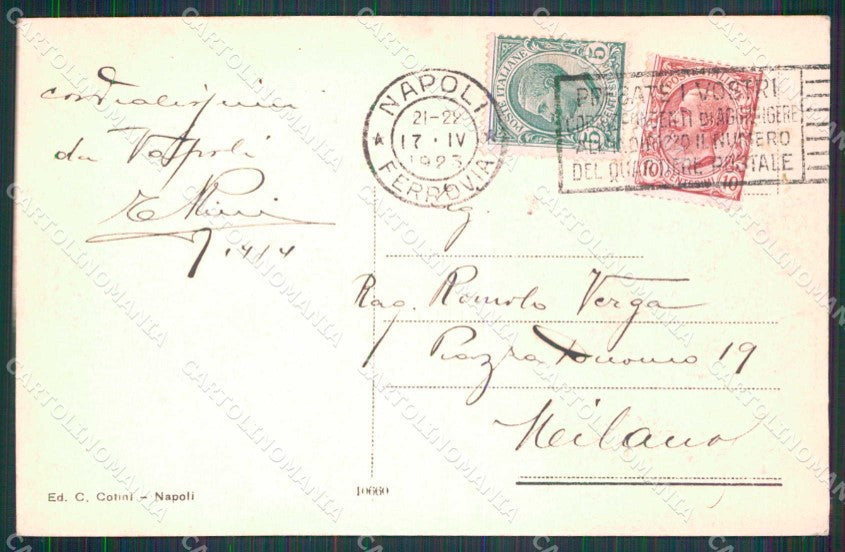 cordialissimi
da Napoli
17/4
NAPOLI
21-22
17 · IV
1923
FERROVIA
POSTE ITALIANE
5
5
10
10
PREGATE I VOSTRI
CORRISPONDENTI DI AGGIUNGERE
ALL'INDIRIZZO IL NUMERO
DEL QUARTIERE POSTALE
Sig.
Rag. Romolo Verga
Piazza Duomo 19
Milano
Ed. C. Cotini – Napoli
10660
CARTOLINOMANIA